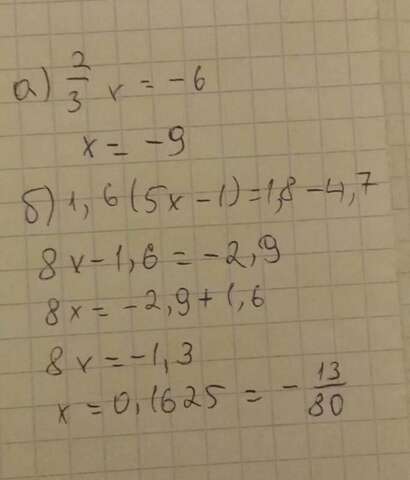 а) 2/3 x = -6
x = -9
б) 1,6(5x-1)=1,8-4,7
8x-1,6=-2,9
8x=-2,9+1,6
8x=-1,3
x=0,1625 = -13/80